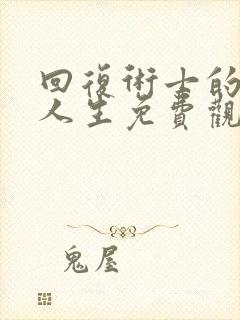 回復術士的
人生免費觀
鬼屋